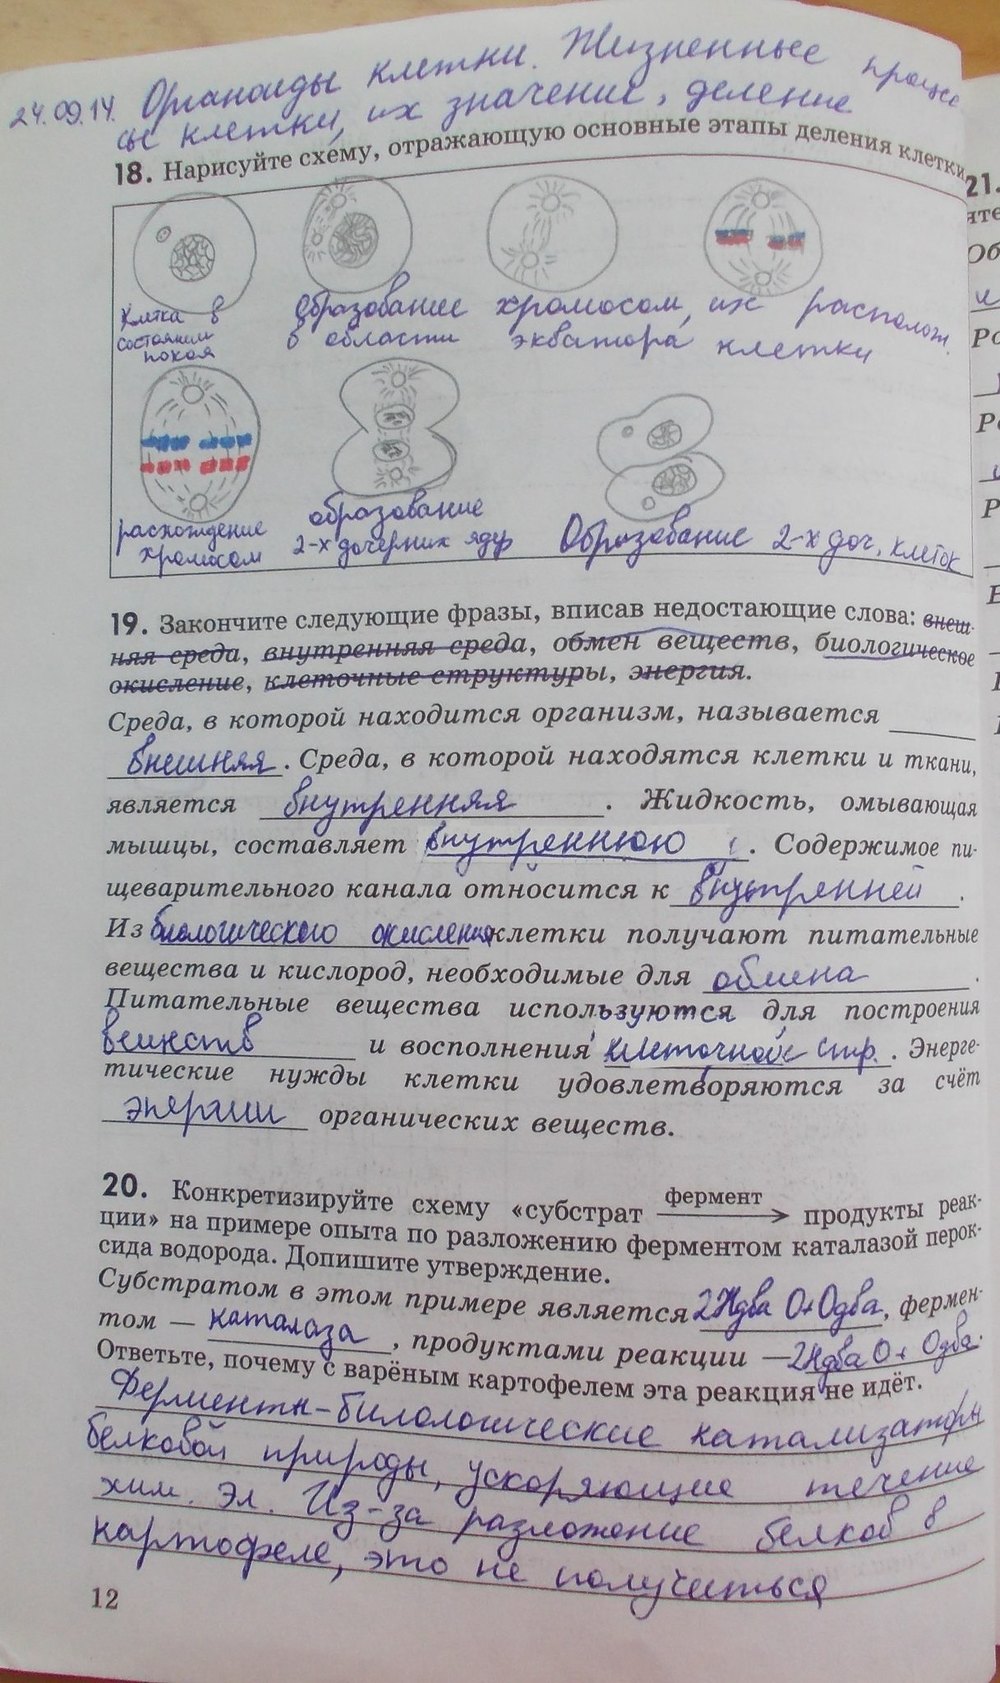 24.09.14. Органоиды клетки. Жизненные процес
сы клетки, их значение, деление
18. Нарисуйте схему, отражающую основные этапы деления клетки
Клетка в
состоянии
покоя
Образование хромосом, их располож.
в области экватора клетки
расхождение
хромосом
образование
2-х дочерних ядер
Образование 2-х доч. клеток
19. Закончите следующие фразы, вписав недостающие слова: внеш-
няя среда, внутренняя среда, обмен веществ, биологическое
окисление, клеточные структуры, энергия.
Среда, в которой находится организм, называется
внешняя. Среда, в которой находятся клетки и ткани,
является внутренняя. Жидкость, омывающая
мышцы, составляет внутреннюю. Содержимое пи-
щеварительного канала относится к внутренней.
Из биологического окисления клетки получают питательные
вещества и кислород, необходимые для обмена.
Питательные вещества используются для построения
веществ и восполнения клеточной стр. Энерге-
тические нужды клетки удовлетворяются за счёт
энергии органических веществ.
20. Конкретизируйте схему «субстрат фермент продукты реак-
ции» на примере опыта по разложению ферментом каталазой перок-
сида водорода. Допишите утверждение.
Субстратом в этом примере является 2Hдва O+Oдва, фермен-
том — каталаза, продуктами реакции — 2Hдва O+ Oдва.
Ответьте, почему с варёным картофелем эта реакция не идёт.
Ферменты-билологические катализаторы
белковой природы, ускоряющие течение
хим. эл. Из-за разложение белков в
картофеле, это не получиться
12
21.
яте
Об
и
Ро
Р
Р